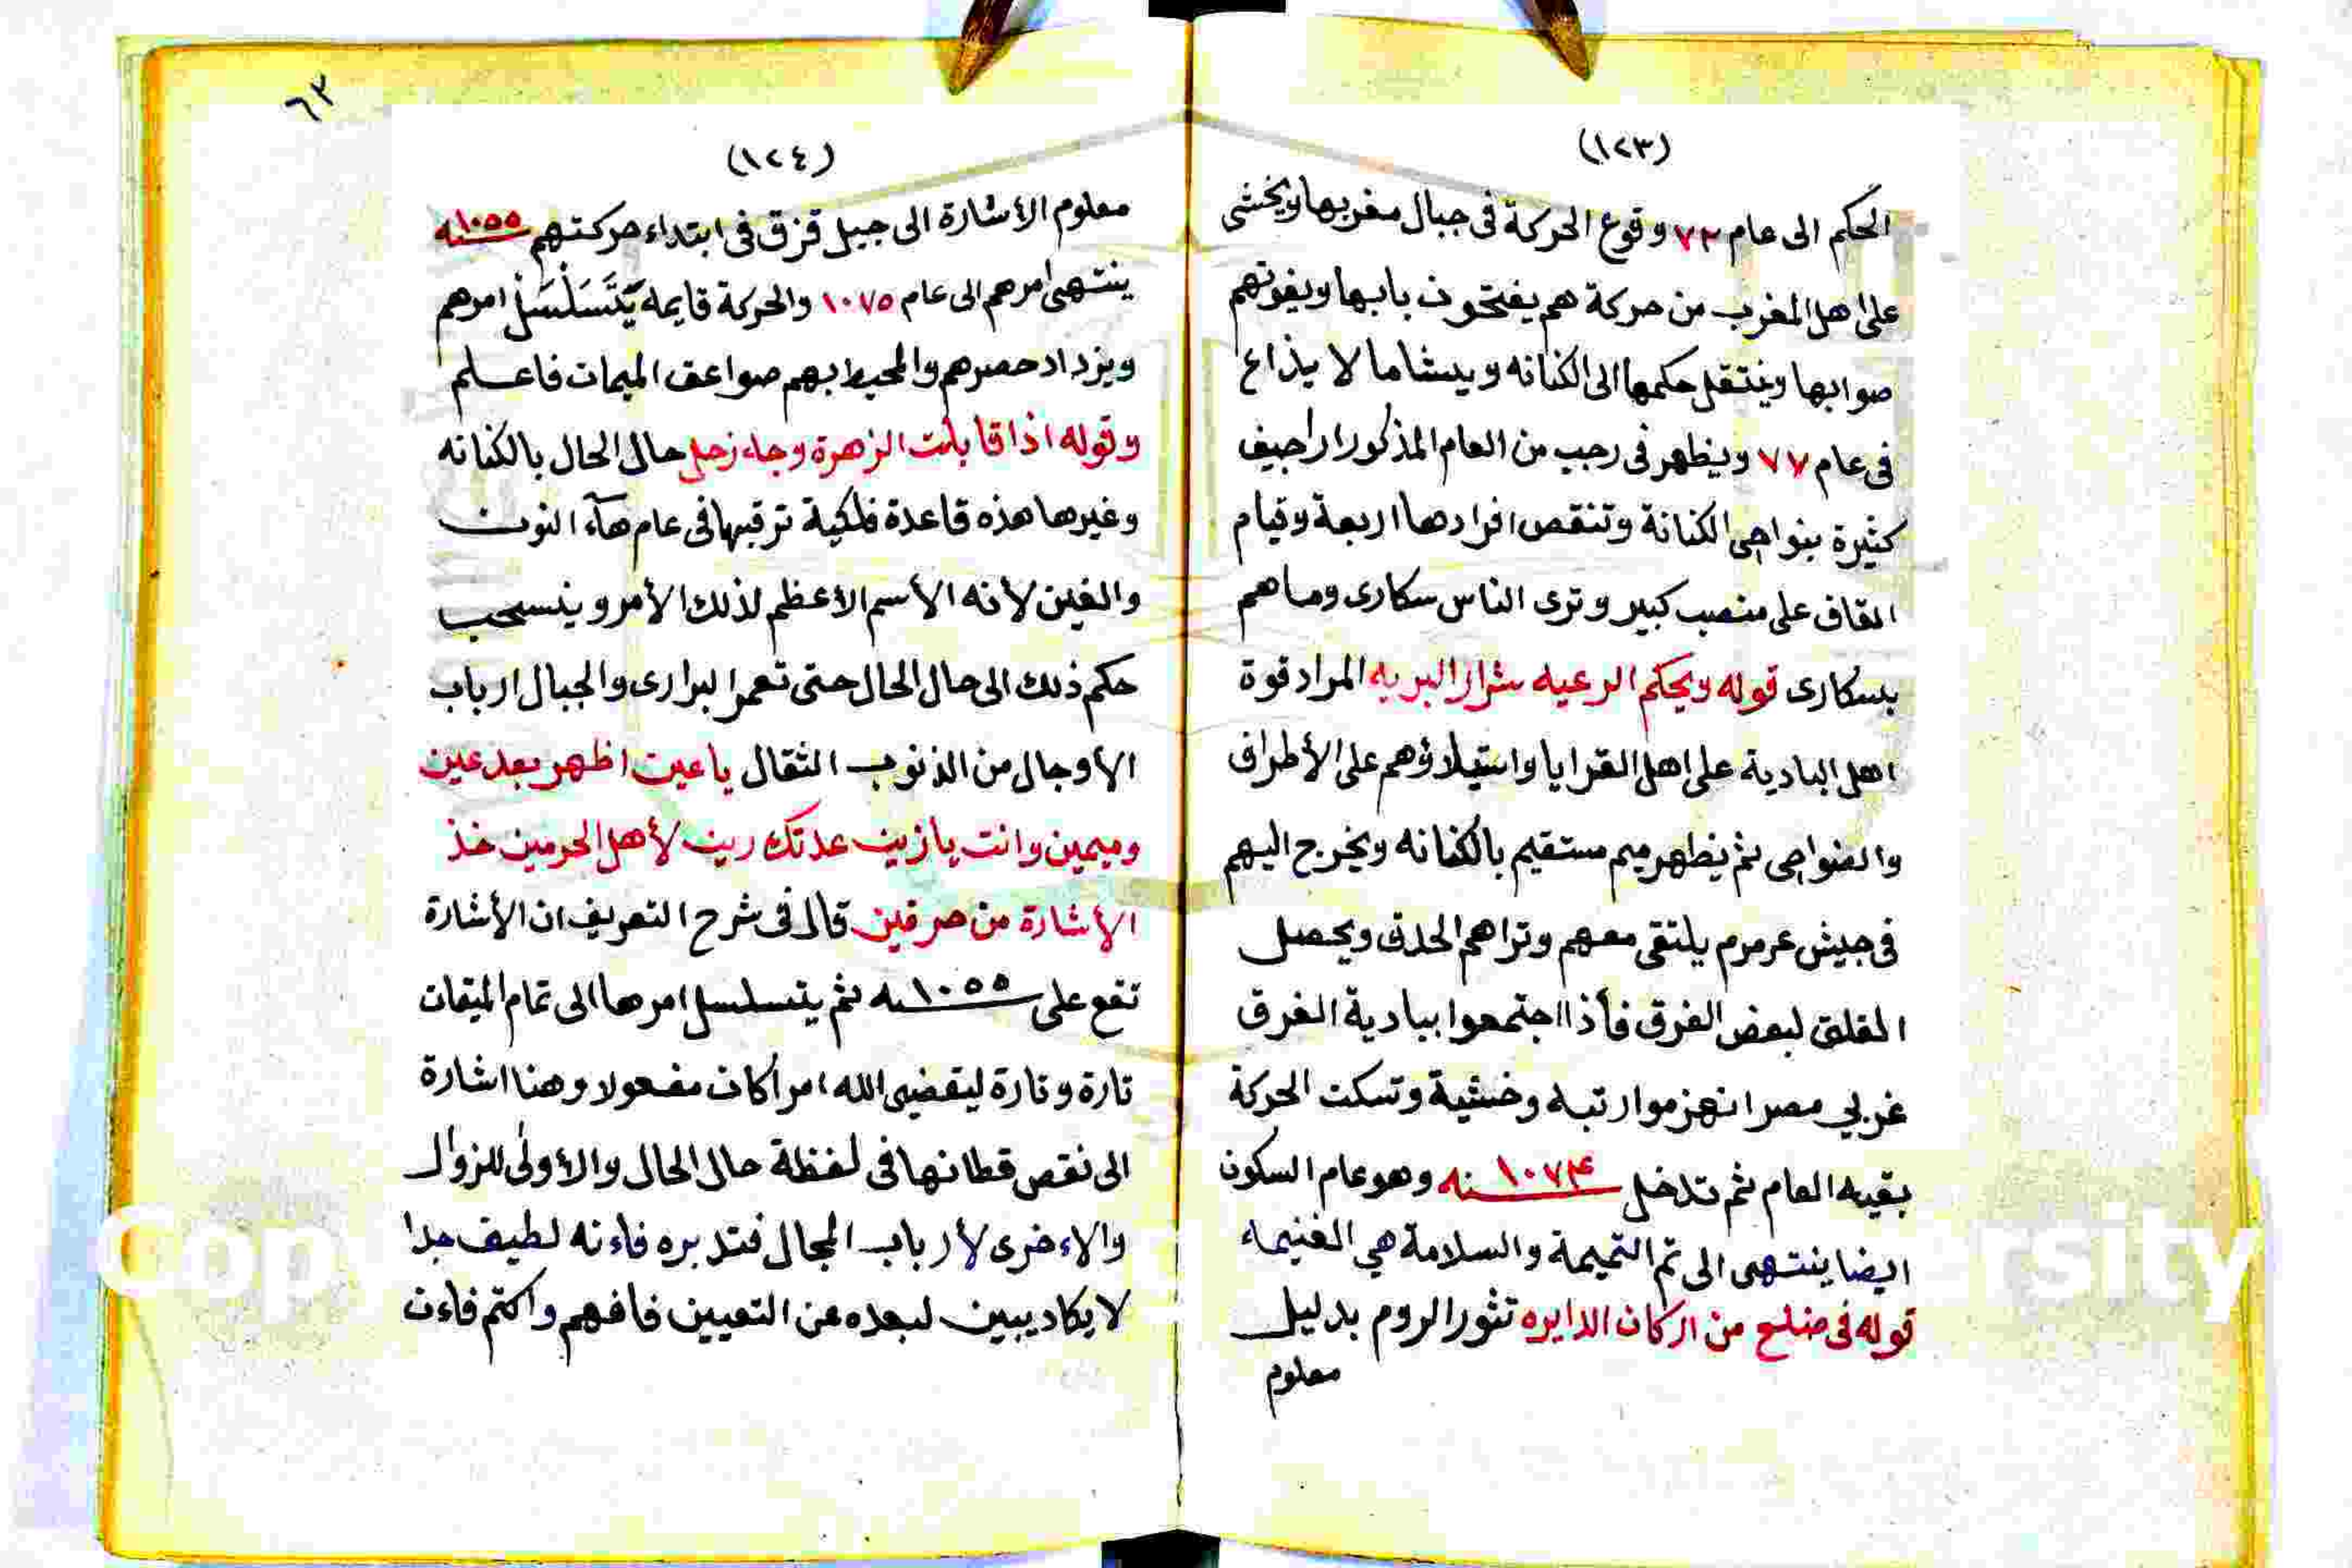 (١٢٣)
الحكم الى عام ٧٢ وقوع الحركة فى جبال مغربها ويخشى
على اهل المغرب من حركة هم يفتحون بابها ويفوتهم
صوابها وينتقل حكمها الى الكنانه ويشاما لا يذاع
فى عام ٧٧ ويظهر فى رجب من العام المذكور اراجيف
كثيرة بنواحى الكنانة وتنقص افرادها اربعة وقيام
القاف على منصب كبير وترى الناس سكارى وما هم
بسكارى قوله ويحكم الرعيه شرار البريه المراد قوة
اهل البادية على اهل القرايا واستيلاؤهم على الأطراف
والضواحى ثم يظهر ميم مستقيم بالكنانه ويخرج اليهم
فى جيش عرمرم يلتقى معهم وتراهم الحدق ويحصل
القلق لبعض الفرق فأذا اجتمعوا ببادية الفرق
غربي مصر انهزموا رتبه وخشية وتسكت الحركة
بقيه العام ثم تدخل سنه ١٠٧٤ وهو عام السكون
ايضا ينتهى الى تم التميمة والسلامة هي الغنيماء
قوله فى ضلع من اركان الدايره تثور الروم بدليل
معلوم
٦٣
(١٢٤)
معلوم الأشارة الى جيل قزق فى ابتداء حركتهم سنه ١٠٥٥
ينتهى امرهم الى عام ١٠٧٥ والحركة قايمه يَتَسَلْسَلْ امرهم
ويزداد حصرهم والمحيط بهم صواعق الميمات فاعلم
وقوله اذا قابلت الزهرة وجاء زحل حال الحال بالكنانه
وغيرها هذه قاعدة فلكية ترقبها فى عام هآء النون
والغين لأنه الأسم الأعظم لذلك الأمر وينسحب
حكم ذلك الى حال الحال حتى تعمر البرارى والجبال ارباب
الأوجال من الذنوب الثقال يا عين اظهر بعد عين
وميمين وانت يا زين عدتك رين لأهل الحرمين خذ
الأشارة من حرفين قال فى شرح التعريف ان الأشارة
تقع على سنه ١٠٥٥ ثم يتسلسل امرها الى تمام الميقات
تارة وتارة ليقضى الله امرا كان مفعولا وهنا اشارة
الى نقص قطانها فى لفظة حال الحال والأولى للزوال
والاءخرى لأرباب المجال فتدبره فاءنه لطيف جدا
لا يكاد يبين لبعده عن التعيين فافهم واكتم فاءن